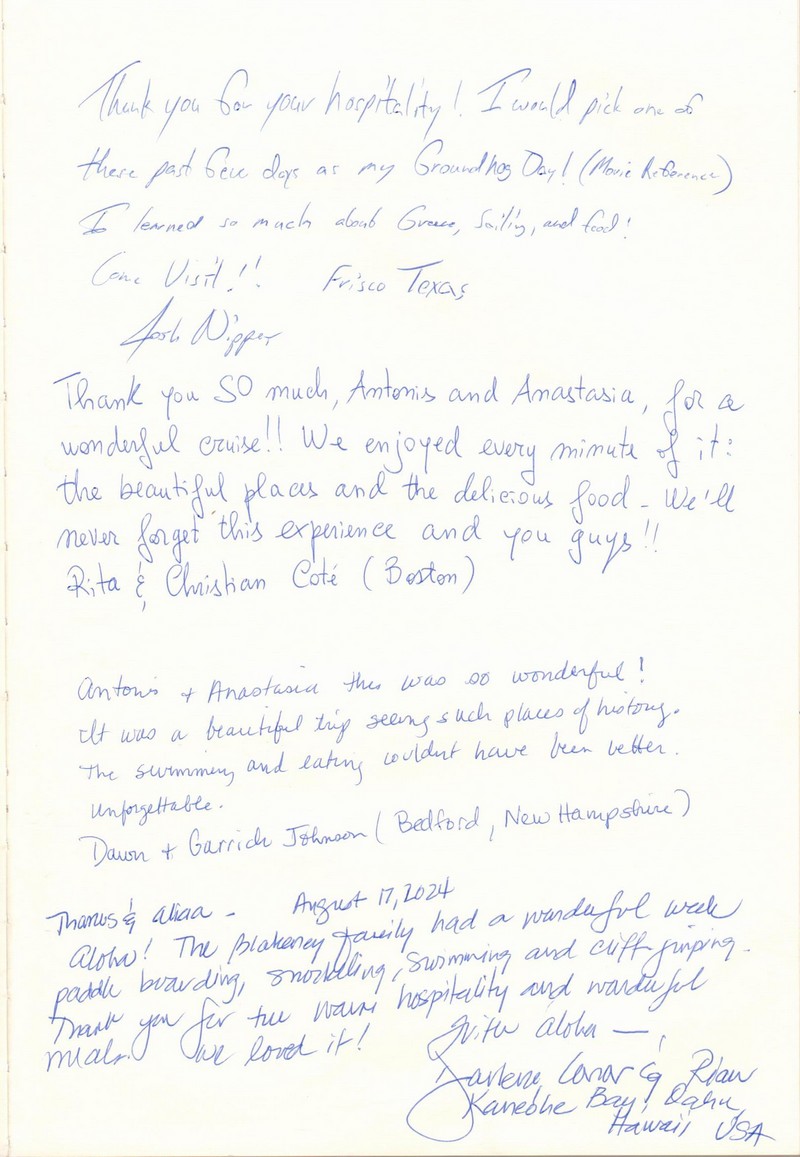 Thank you for your hospitality! I would pick one of
these past few days as my Groundhog Day! (Movie Reference)
I learned so much about Greece, Sailing, and food!
Come Visit!! Frisco Texas
Josh Nipper
Thank you SO much, Antonis and Anastasia, for a
wonderful cruise!! We enjoyed every minute of it:
the beautiful places and the delicious food - We'll
never forget this experience and you guys!!
Rita & Christian Coté (Boston)
Antonis + Anastasia this was so wonderful!
It was a beautiful trip seeing such places of history.
The swimming and eating couldnt have been better.
Unforgettable.
Dawn + Garrick Johnson (Bedford, New Hampshire)
& - August 17, 2024
Aloha! The Blakeney family had a wonderful week
paddle boarding, snorkeling, swimming and cliff jumping.
Thank you for the warm hospitality and wonderful
meals. We loved it!
With aloha —,
Darlene, Conor &
Kaneohe Bay, Oahu,
Hawaii USA